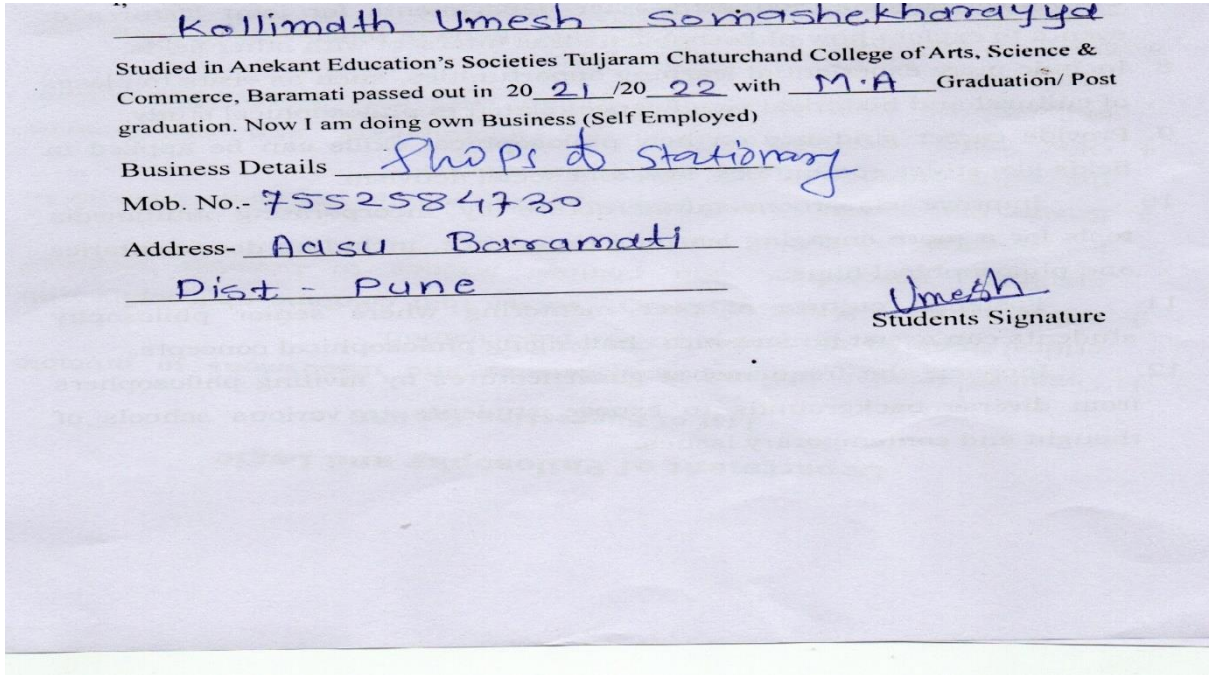 Kollimath Umesh Somashekharayya
Studied in Anekant Education's Societies Tuljaram Chaturchand College of Arts, Science &
Commerce, Baramati passed out in 20 21 /20 22 with M.A Graduation/ Post
graduation. Now I am doing own Business (Self Employed)
Business Details Shops & Stationary
Mob. No.- 7552584730
Address- Aasu Baramati
Dist - Pune
Umesh
Students Signature